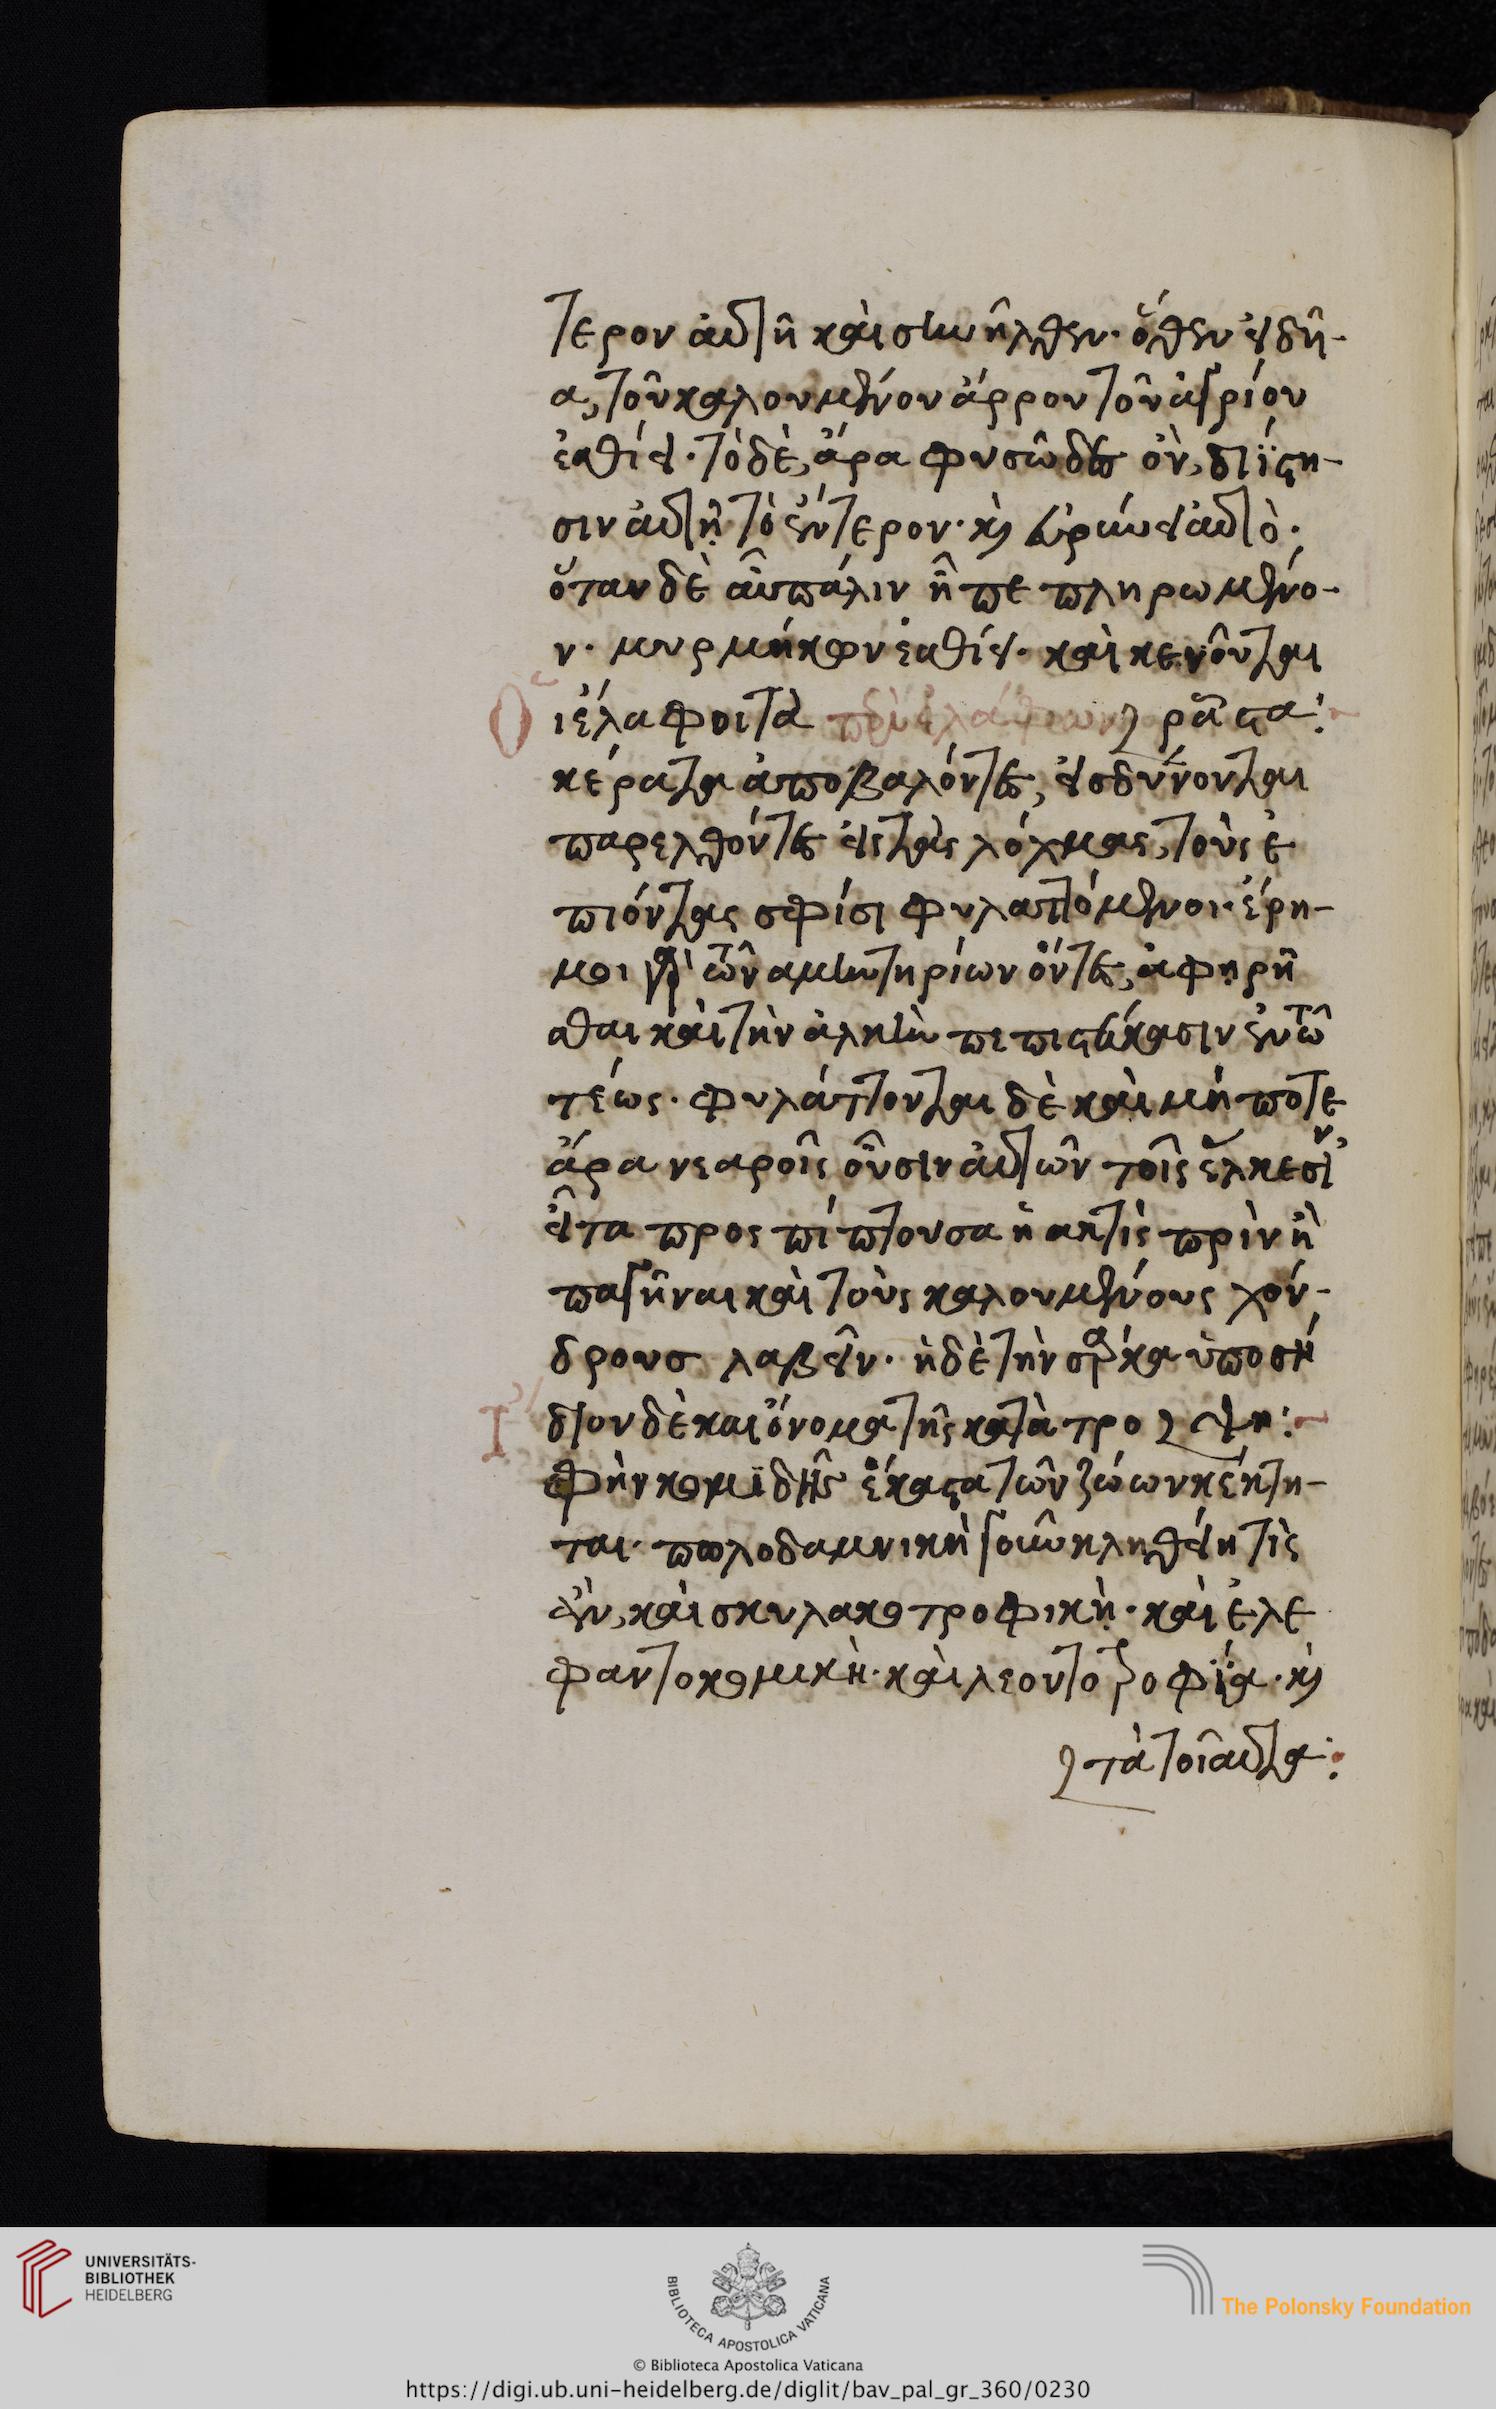 τερον αὐτῆ καὶ συνῆλθεν· ὅθεν εἰδυῖ-
α, τοῦ καλουμένου ἄρρου τοῦ ἀγρίου
ἐσθίει· τὸ δὲ, ἄρα φυσῶδες ὂν, διΐστη-
σιν αὐτῆ τὸ ἔντερον· κ εὐρύνει αὐτὸ·
ὅταν δὲ αὖ πάλιν ᾖ πε πληρωμένο-
ν· μυρμήκων ἐσθίει· καὶ κενοῦται
Οἱ ἔλαφοι τὰ περὶ ἐλάφων ρᾶστα:
κέρατα ἀποβαλόντες, εἰσδύνονται
παρελθόντες εἰς τὰς λόχμας, τοὺς ἐ
πιόντας σφίσι φυλαττόμενοι· ἔρη-
μοι γὰρ τῶν ἀμυντηρίων ὄντες, ἀφηρῆ
σθαι καὶ τὴν ἀλκὴν πεπιστεύκασιν ἐν τῶ
τέως· φυλάττονται δὲ καὶ μή ποτε
ἄρα νεαροῖς οὖσιν αὐτῶν τοῖς ἕλκεσιν
εἶτα προς πίπτουσα ἡ ακτὶς πρὶν ἢ
παγῆναι καὶ τοὺς καλουμένους χόν-
δρουσ λαβεῖν· ἡ δὲ τὴν σάρκα ὑποσή
Ἴδιον δὲ και ὄνομα τῆς κατὰ τρο ψη:
φὴν κομιδῆς ἕκαστα τῶν ζώων κέκτη-
ται· πωλοδαμνικὴ γοῦν κληθείη τὶς
ἂν, καὶ σκυλακο τροφικὴ· καὶ ἐλε
φαντοκομικὴ· καὶ λεοντοτροφΐα· κ
τὰ τοιαῦτα:
UNIVERSITÄTS-
BIBLIOTHEK
HEIDELBERG
BIBLIOTECA APOSTOLICA VATICANA
The Polonsky Foundation
© Biblioteca Apostolica Vaticana
https://digi.ub.uni-heidelberg.de/diglit/bav_pal_gr_360/0230